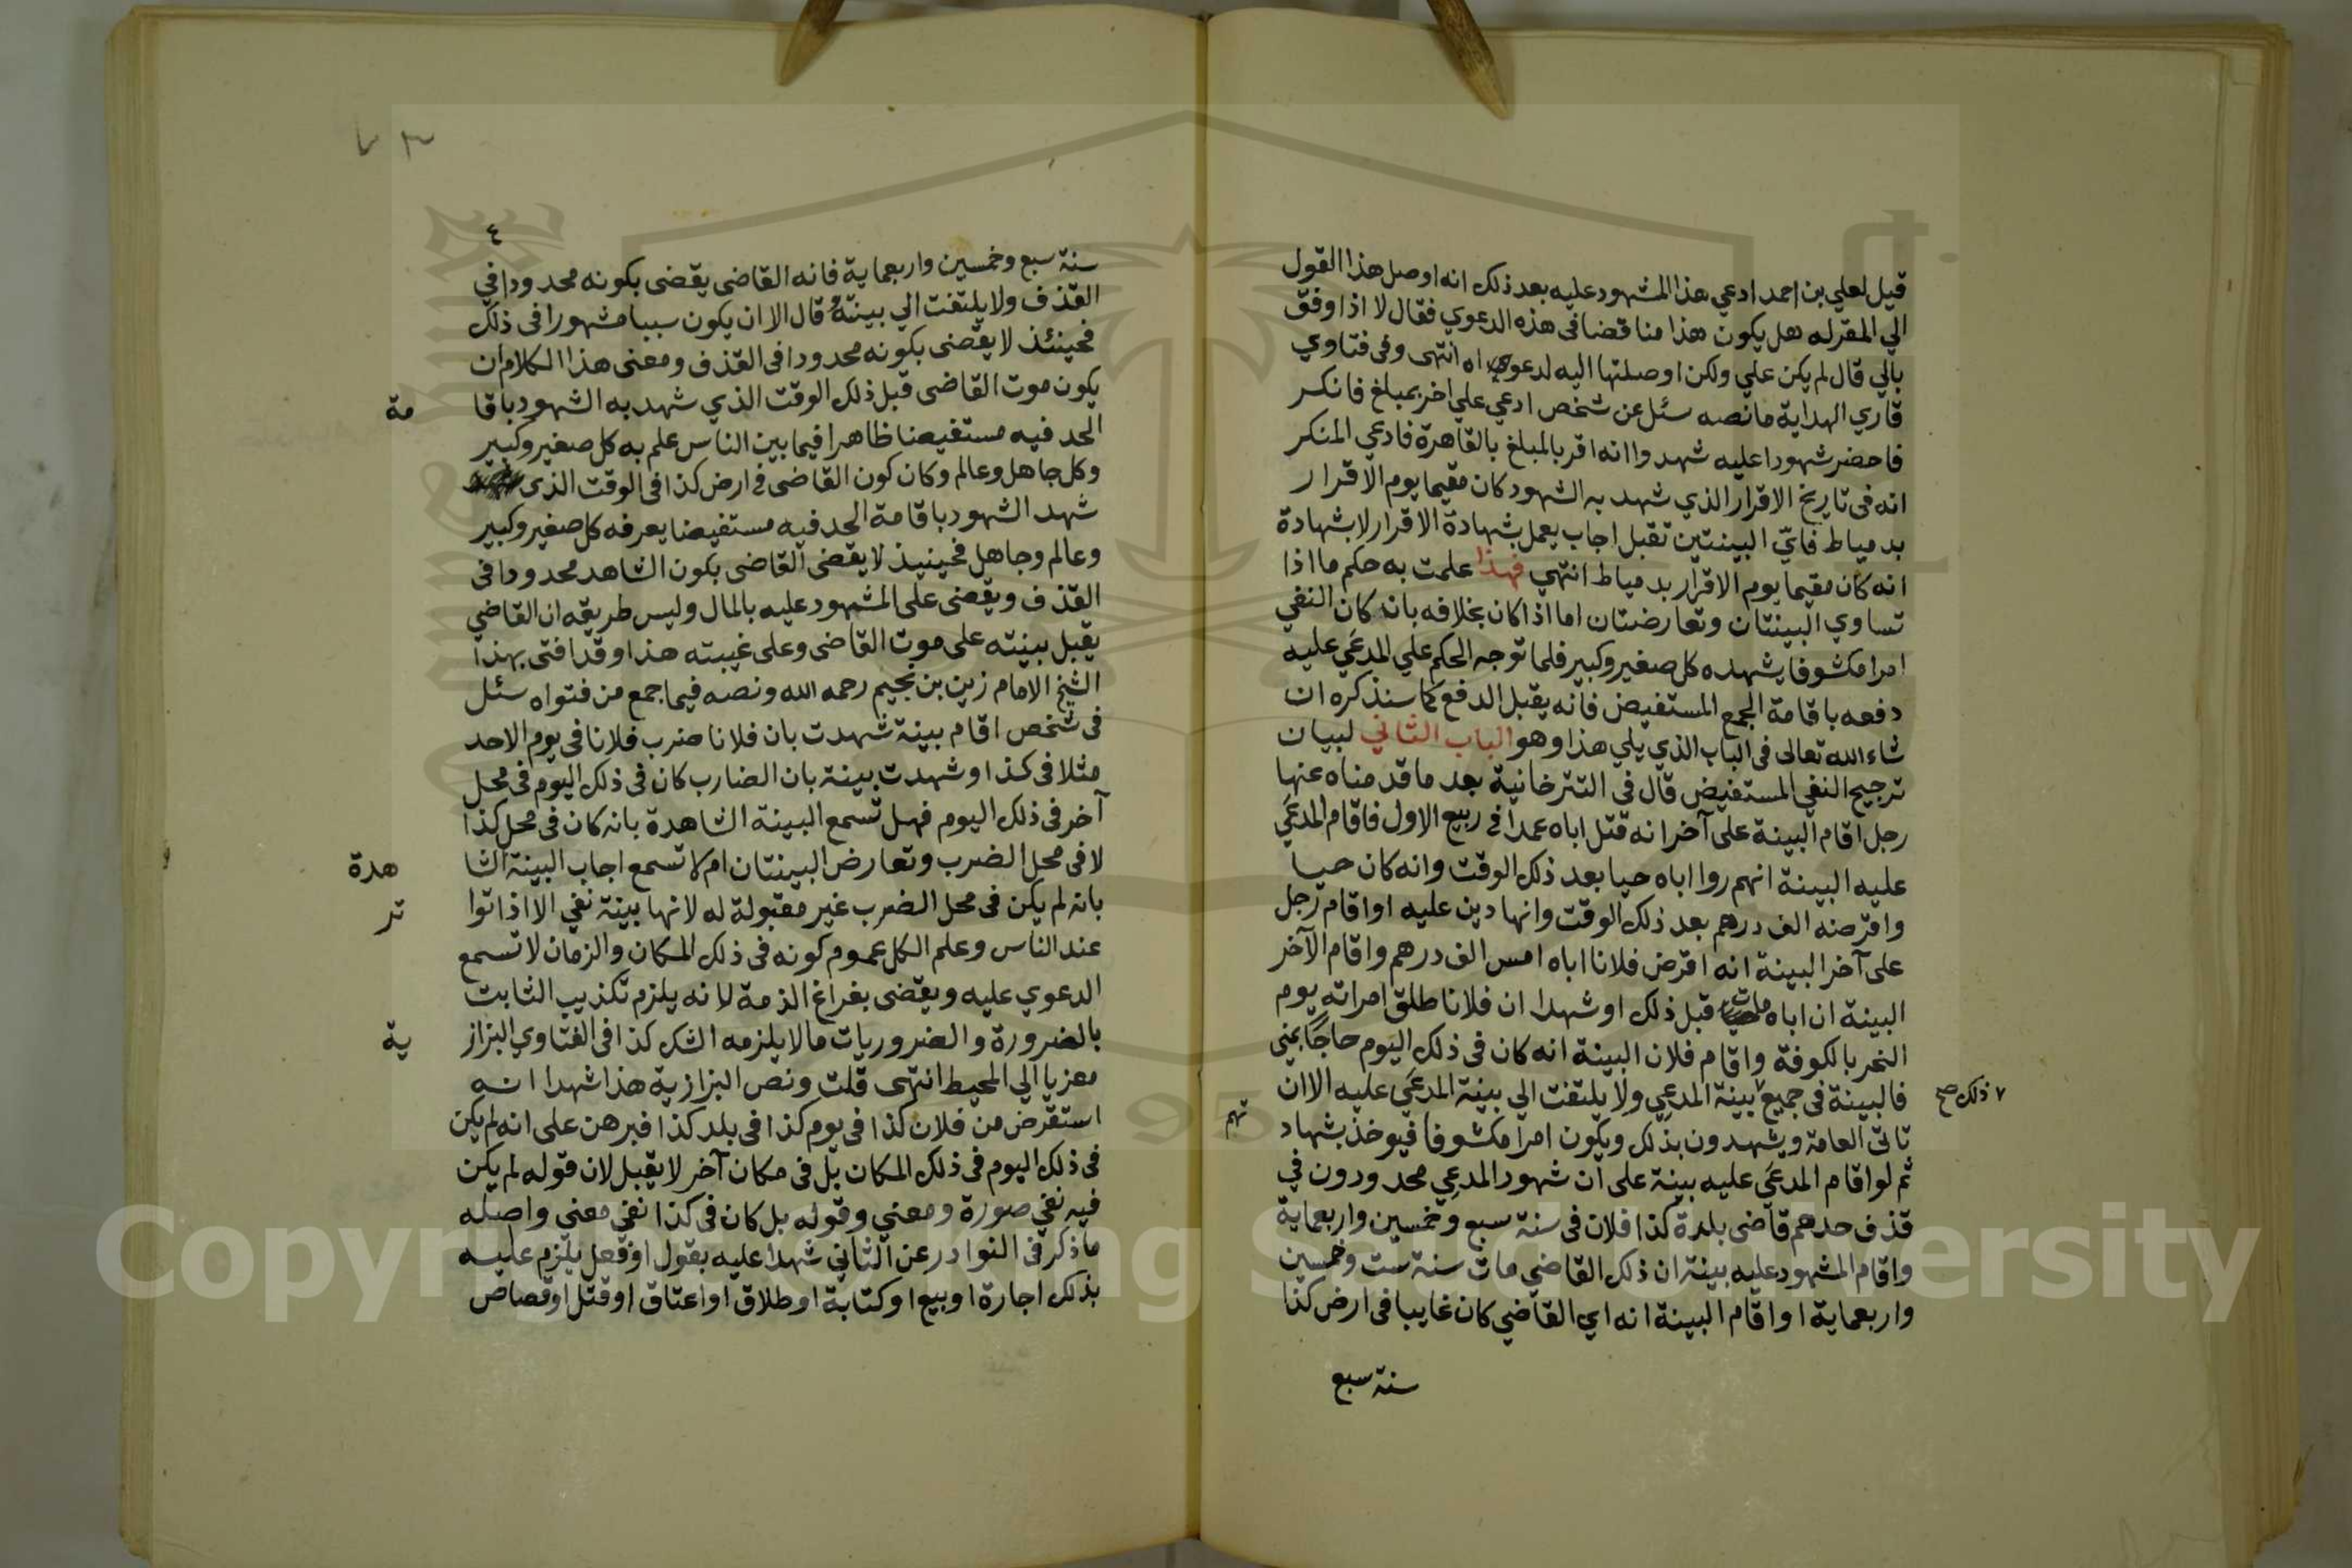 قيل لعلي بن احمد ادعي هذا المشهود عليه بعد ذلك انه اوصل هذا القول
الي المقر له هل يكون هذا مناقضا في هذه الدعوي فقال لا اذا وفق
بالي قال لم يكن علي ولكن اوصلتها اليه لدعواه انتهى وفي فتاوي
قاري الهداية ما نصه سئل عن شخص ادعي علي اخر بمبلغ فانكر
فاحضر شهودا عليه شهدوا انه اقر بالمبلغ بالقاهرة فادعي المنكر
انه في تاريخ الاقرار الذي شهد به الشهود كان مقيما يوم الاقرار
بدمياط فايّ البينتين تقبل اجاب يعمل بشهادة الاقرار لا بشهادة
انه كان مقيما يوم الاقرار بدمياط انتهي فهذا علمت به حكم ما اذا
تساوي البينتان وتعارضتان اما اذا كان بخلافه بان كان النفي
امرا مكشوفا يشهده كل صغير وكبير فلما توجه الحكم علي المدعَي عليه
دفعه باقامة الجمع المستفيض فانه يقبل الدفع كما سنذكره ان
شاء الله تعالى في الباب الذي يلي هذا وهو الباب الثاني لبيان
ترجيح النفي المستفيض قال في التترخانية بعد ما قدمناه عنها
رجل اقام البينة على آخر انه قتل اباه عمدا في ربيع الاول فاقام المدعَي
عليه البينة انهم روا اباه حيا بعد ذلك الوقت وانه كان حيا
واقرضه الف درهم بعد ذلك الوقت وانها دين عليه او اقام رجل
على آخر البينة انه اقرض فلانا اباه امس الف درهم واقام الآخر
البينة ان اباه مات قبل ذلك او شهدا ان فلانا طلق امراته يوم
النحر بالكوفة واقام فلان البينة انه كان في ذلك اليوم حاجًا بمني
فالبينة في جميع بينة المدعِي ولا يلتفت الي بينة المدعَي عليه الا ان
٧ ذلك صح
تاتي العامة ويشهدون بذلك ويكون امرا مكشوفا فيوخذ بشهاد
تهم
ثم لو اقام المدعَي عليه بينة على ان شهود المدعِي محدودون في
قذف حدهم قاضى بلدة كذا فلان في سنة سبع وخمسين واربعماية
واقام المشهود عليه بينة ان ذلك القاضي مات سنة ست وخمسين
واربعماية او اقام البينة انه اي القاضي كان غايبا في ارض كذا
سنة سبع
٤
سنة سبع وخمسين واربعماية فانه القاضى يقضى بكونه محدودا في
القذف ولا يلتفت الي بينته قال الا ان يكون سببا مشهورا في ذلك
فحينئذ لا يقضى بكونه محدودا في القذف ومعنى هذا الكلام ان
يكون موت القاضى قبل ذلك الوقت الذي شهد به الشهود باقا
مة
الحد فيه مستفيضا ظاهرا فيما بين الناس علم به كل صغير وكبير
وكل جاهل وعالم وكان كون القاضى في ارض كذا في الوقت الذي
شهد الشهود باقامة الحد فيه مستفيضا يعرفه كل صغير وكبير
وعالم وجاهل فحينيذ لا يقضى القاضى بكون الشاهد محدودا في
القذف ويقضى على المشهود عليه بالمال وليس طريقه ان القاضي
يقبل بينته على موت القاضى وعلى غيبته هذا وقد افتى بهذا
الشيخ الامام زين بن نجيم رحمه الله ونصه فيما جمع من فتواه سئل
في شخص اقام بينة شهدت بان فلانا ضرب فلانا في يوم الاحد
مثلا في كذا وشهدت بينة بان الضارب كان في ذلك اليوم في محل
آخر في ذلك اليوم فهل تسمع البينة الشاهدة بانه كان في محل كذا
لا في محل الضرب وتعارض البينتان ام لا تسمع اجاب البينة الشا
هدة
بانه لم يكن في محل الضرب غير مقبولة له لانها بينة نفي الا اذا توا
تر
عند الناس وعلم الكل عموم كونه في ذلك المكان والزمان لا تسمع
الدعوي عليه ويقضى بفراغ الذمة لانه يلزم تكذيب الثابت
بالضرورة والضروريات مالا يلزمه الشك كذا في الفتاوي البزاز
ية
معزيا الي المحيط انتهى قلت ونص البزازية هذا شهدا انه
استقرض من فلان كذا في يوم كذا في بلد كذا فبرهن على انه لم يكن
في ذلك اليوم في ذلك المكان بل في مكان آخر لا يقبل لان قوله لم يكن
فيه نفي صورة ومعني وقوله بل كان في كذا نفي معني واصله
ما ذكر في النوادر عن الثاني شهدا عليه بقول او فعل يلزم عليه
بذلك اجارة او بيع او كتابة او طلاق او اعتاق او قتل او قصاص
Copyright © King Saud University